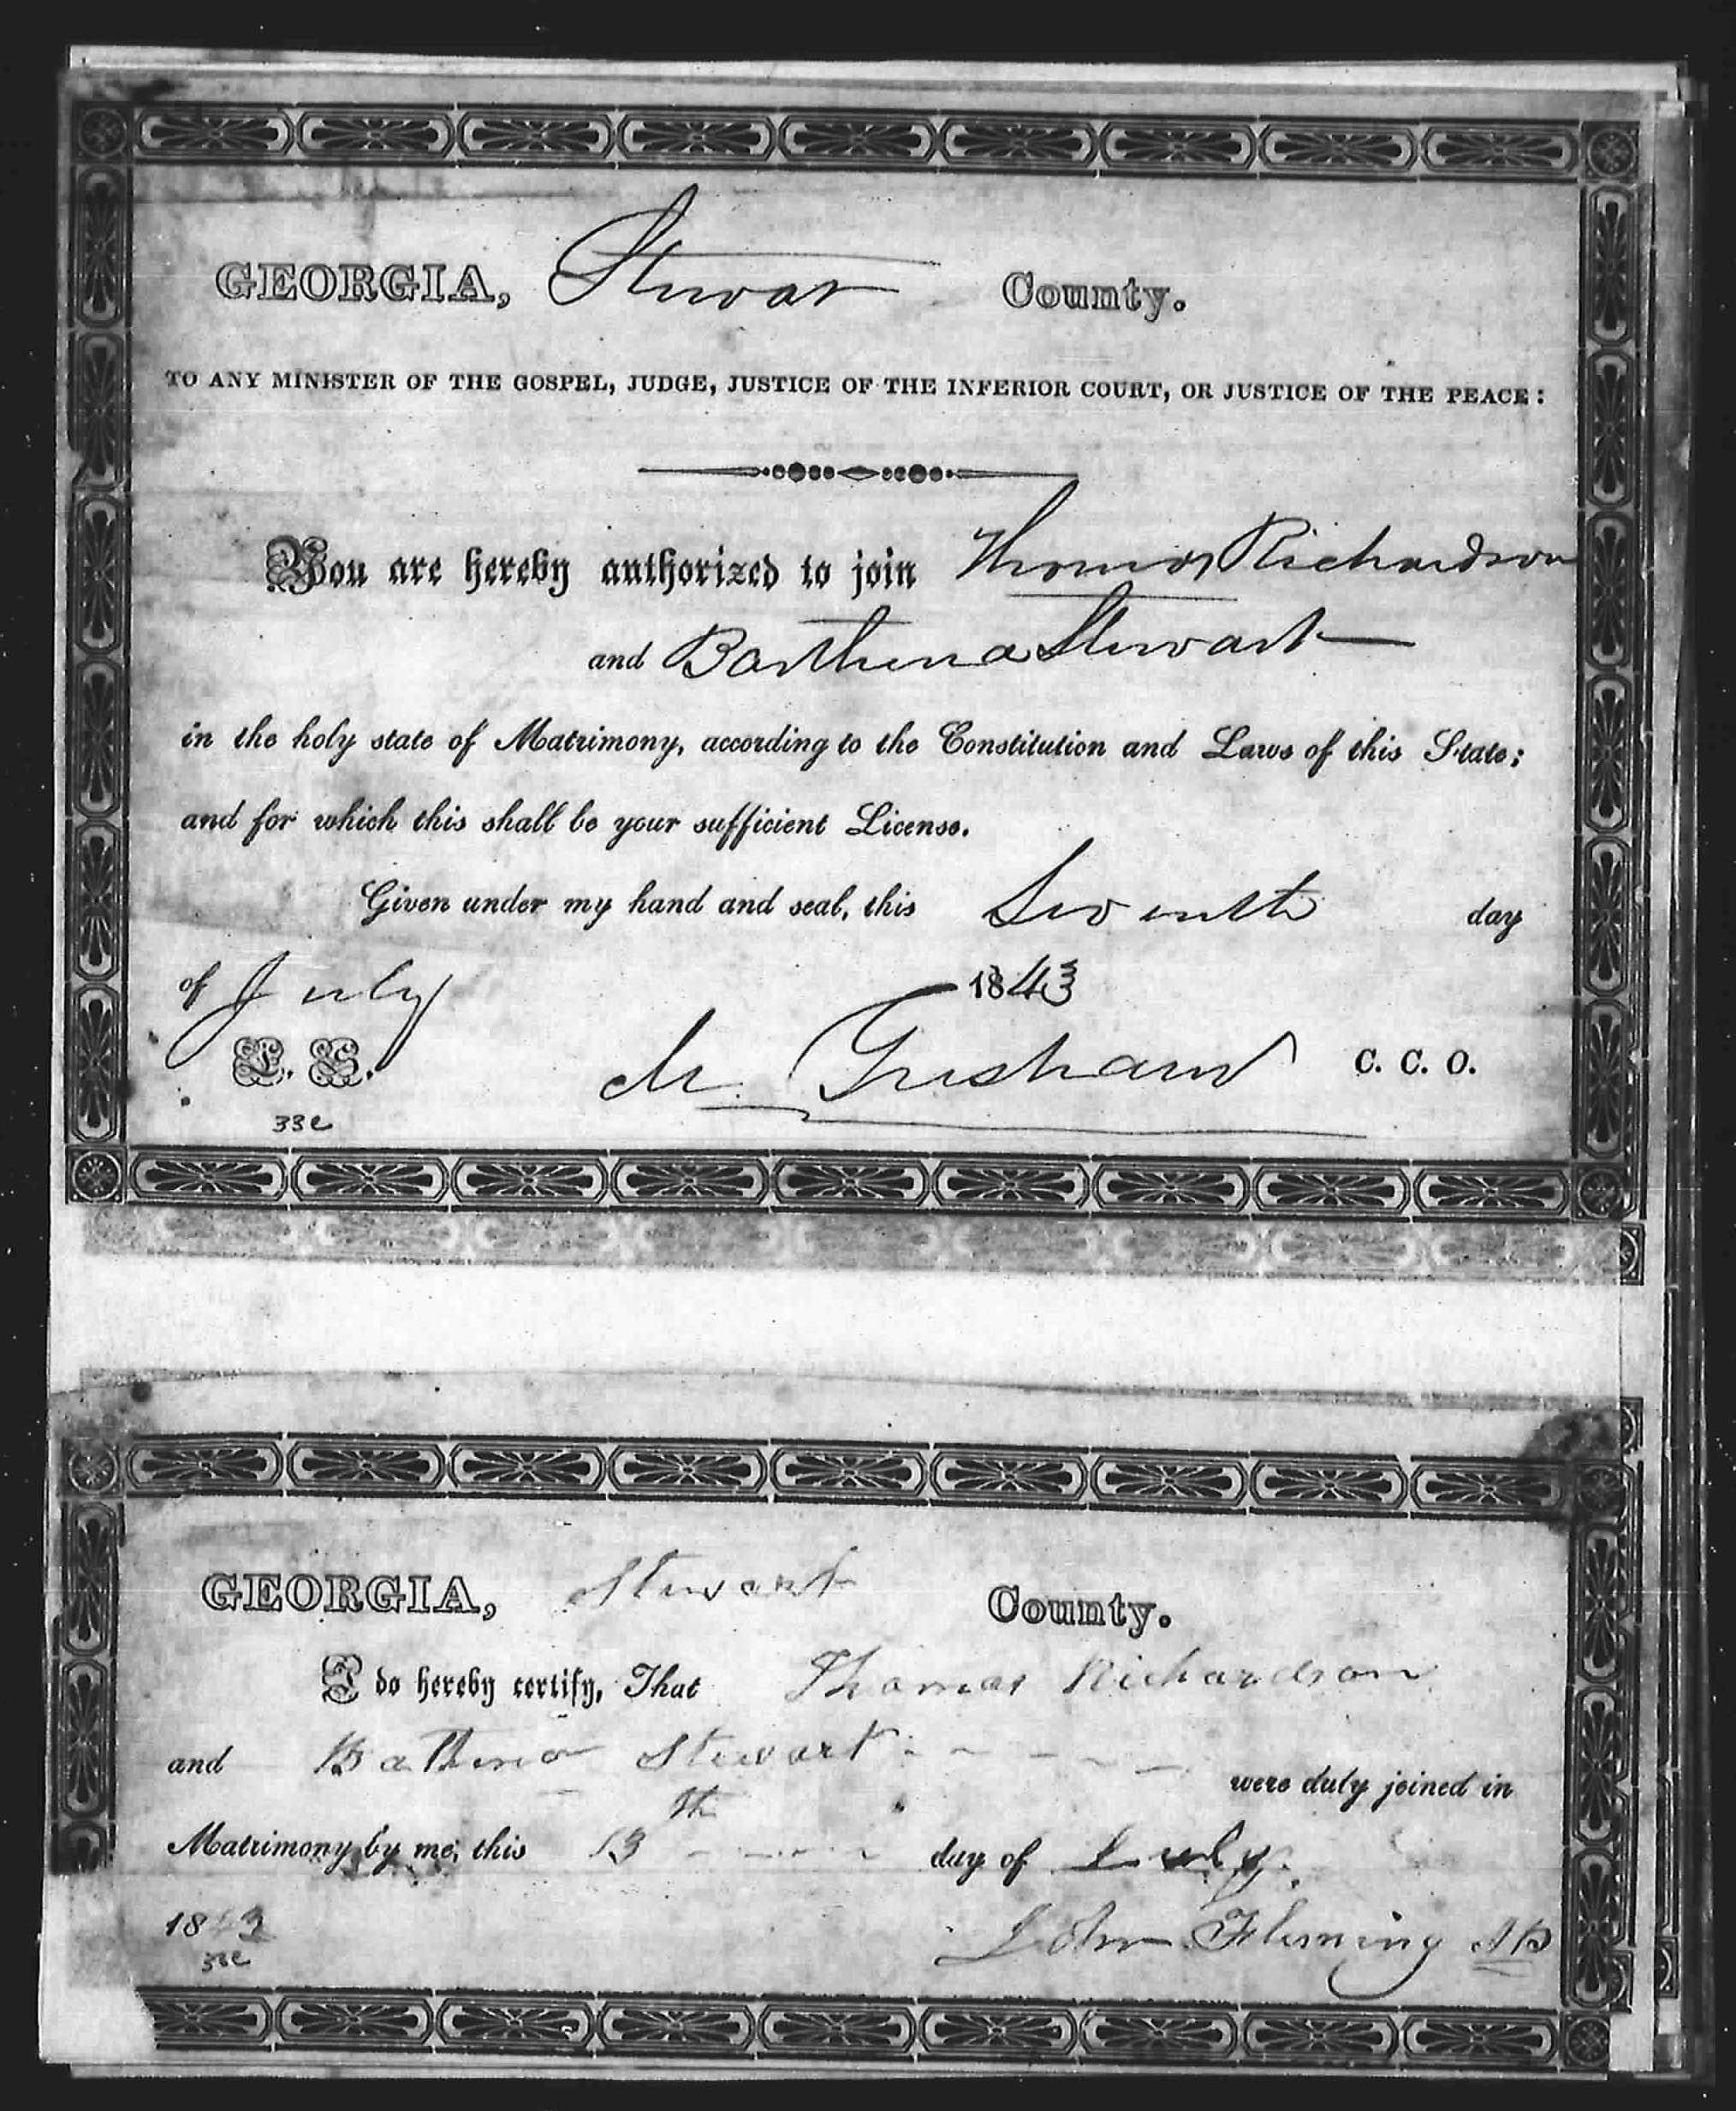 GEORGIA, Stewart County.
TO ANY MINISTER OF THE GOSPEL, JUDGE, JUSTICE OF THE INFERIOR COURT, OR JUSTICE OF THE PEACE:
You are hereby authorized to join Thomas Richardson
and Barthena Stewart
in the holy state of Matrimony, according to the Constitution and Laws of this State;
and for which this shall be your sufficient License.
Given under my hand and seal, this Seventh day
of July 1843
L. S. M. Gresham C. C. O.
33e
GEORGIA, Stewart County.
I do hereby certify, That Thomas Richardson
and Bathena Stewart were duly joined in
Matrimony by me, this 13th day of July
1843 John Fleming JP
33e